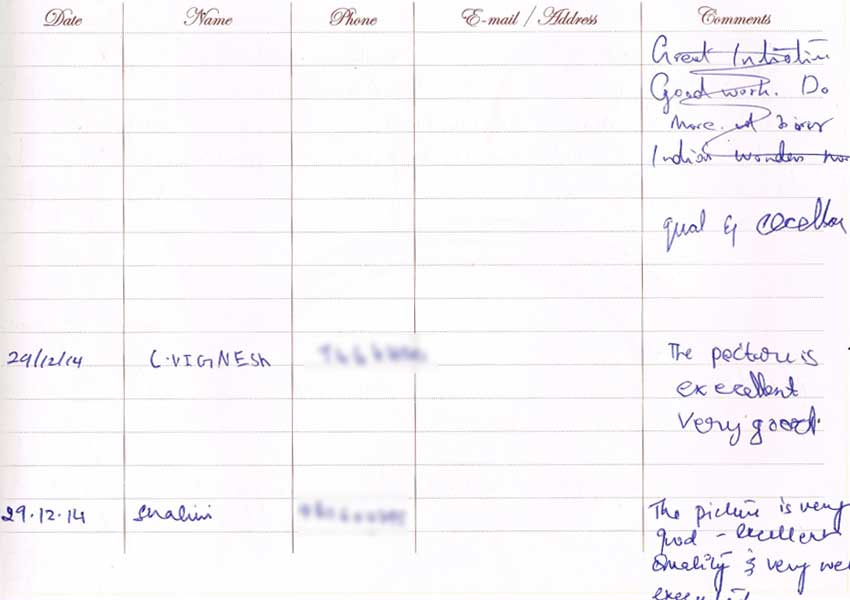 Date Name Phone E-mail / Address Comments
Great Initiative
Good work. Do
more.
Indian wonders
excellen
29/12/14 C.VIGNESH The picture is
execellent
Very good.
29.12.14 Shalini The picture is very
good - excellent
Quality is very we